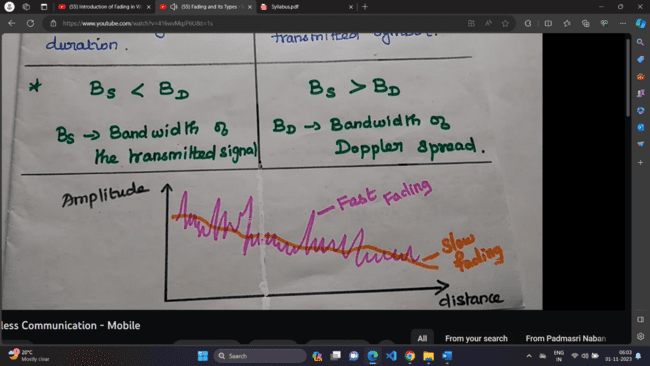 (55) Introduction of Fading in W
(55) Fading and its Types -
Syllabus.pdf
https://www.youtube.com/watch?v=
duration.
transmitted symbol.
* BS < BD
BS > BD
BS → Bandwidth of
the transmitted signal
BD → Bandwidth of
Doppler Spread.
Amplitude
Fast Fading
Slow
fading
distance
less Communication - Mobile
All
From your search
From Padmasri Naban
20°C
Mostly clear
Search
ENG
IN
06:03
01-11-2023